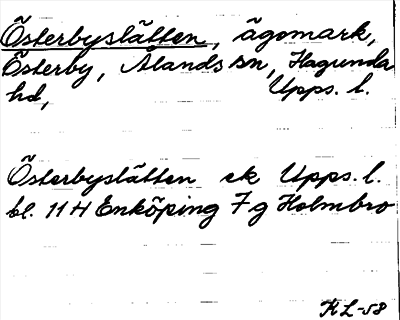 Österbyslätten, ägomark,
Österby, Ålands sn, Hagunda
hd, Upps. l.
Österbyslätten ek Upps. l.
bl. 11 H Enköping 7 g Holmbro
KL-58